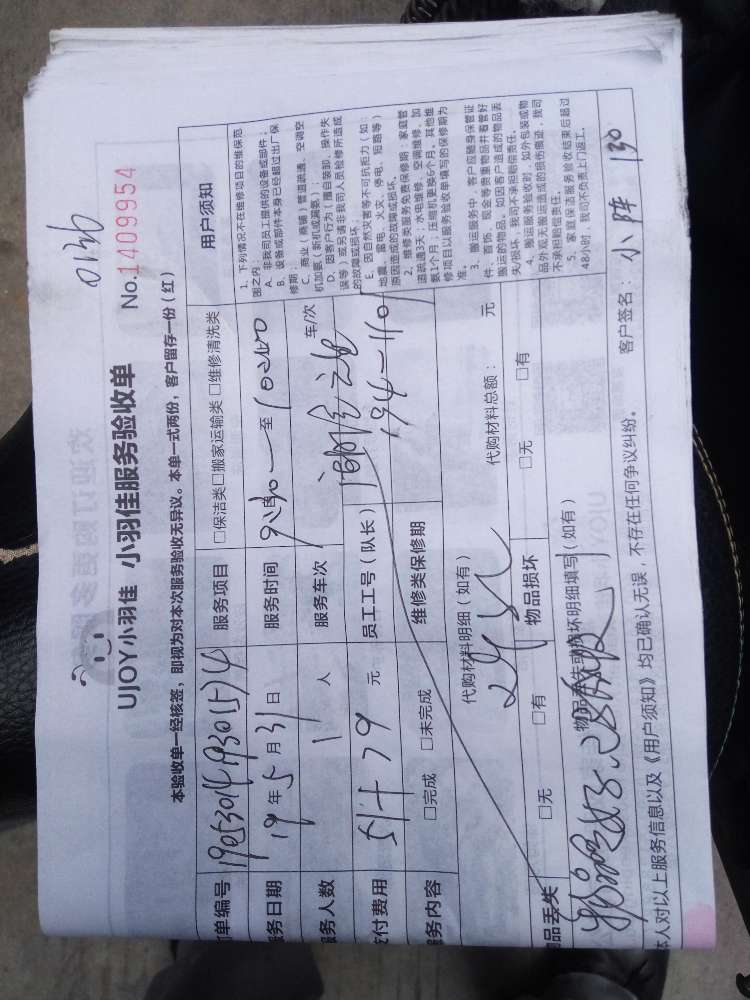 UJOY小羽佳 小羽佳服务验收单
No.14099954
本验收单一经核签，即视为对本次服务验收无异议。本单一式两份，客户留存一份（红）
单编号 服务项目 □保洁类□搬家运输类 □维修清洗类
务日期 19年5月31日 服务时间 至
务人数 1 人 服务车次 车/次
付费用 元 员工工号（队长） 194-1101
务内容 □完成 □未完成 维修类保修期
代购材料明细（如有） 代购材料总额： 元
品丢失 □无 □有 物品损坏 □无 □有
物品丢失或损坏明细填写（如有）
本人对以上服务信息以及《用户须知》均已确认无误，不存在任何争议纠纷。 客户签名：小阵 130
用户须知
1、下列情况不在维修项目的维保范
围之内：
A、非我司员工提供的设备或部件；
B、设备或部件本身已经超过出厂保
修期；
C、商业（商铺）管道疏通、空调空
机加氨（新机或漏氨）；
D、因客户行为（擅自装卸、操作失
误等）或另请非我司人员检修所造成
的故障或损坏；
E、因自然灾害等不可抗拒力（如：
地震、雷电、火灾、停电、短路等）
原因造成的故障或损坏。
2、维修类服务免费保修期：家庭管
道疏通3天；水电维修、空调维修、加
氨1个月；压缩机更换6个月。其他维
修项目以服务验收单填写的保修期为
准。
3、搬运服务中，客户应随身保管证
件、首饰、现金等贵重物品并看管好
搬运的物品。如因客户造成的物品丢
失/损坏，我司不承担赔偿责任。
4、搬运服务验收时，如外包装或物
品外观无搬运造成的损伤痕迹，我司
不承担赔偿责任。
5、家庭保洁服务验收结束后超过
48小时，我司不负责上门返工。